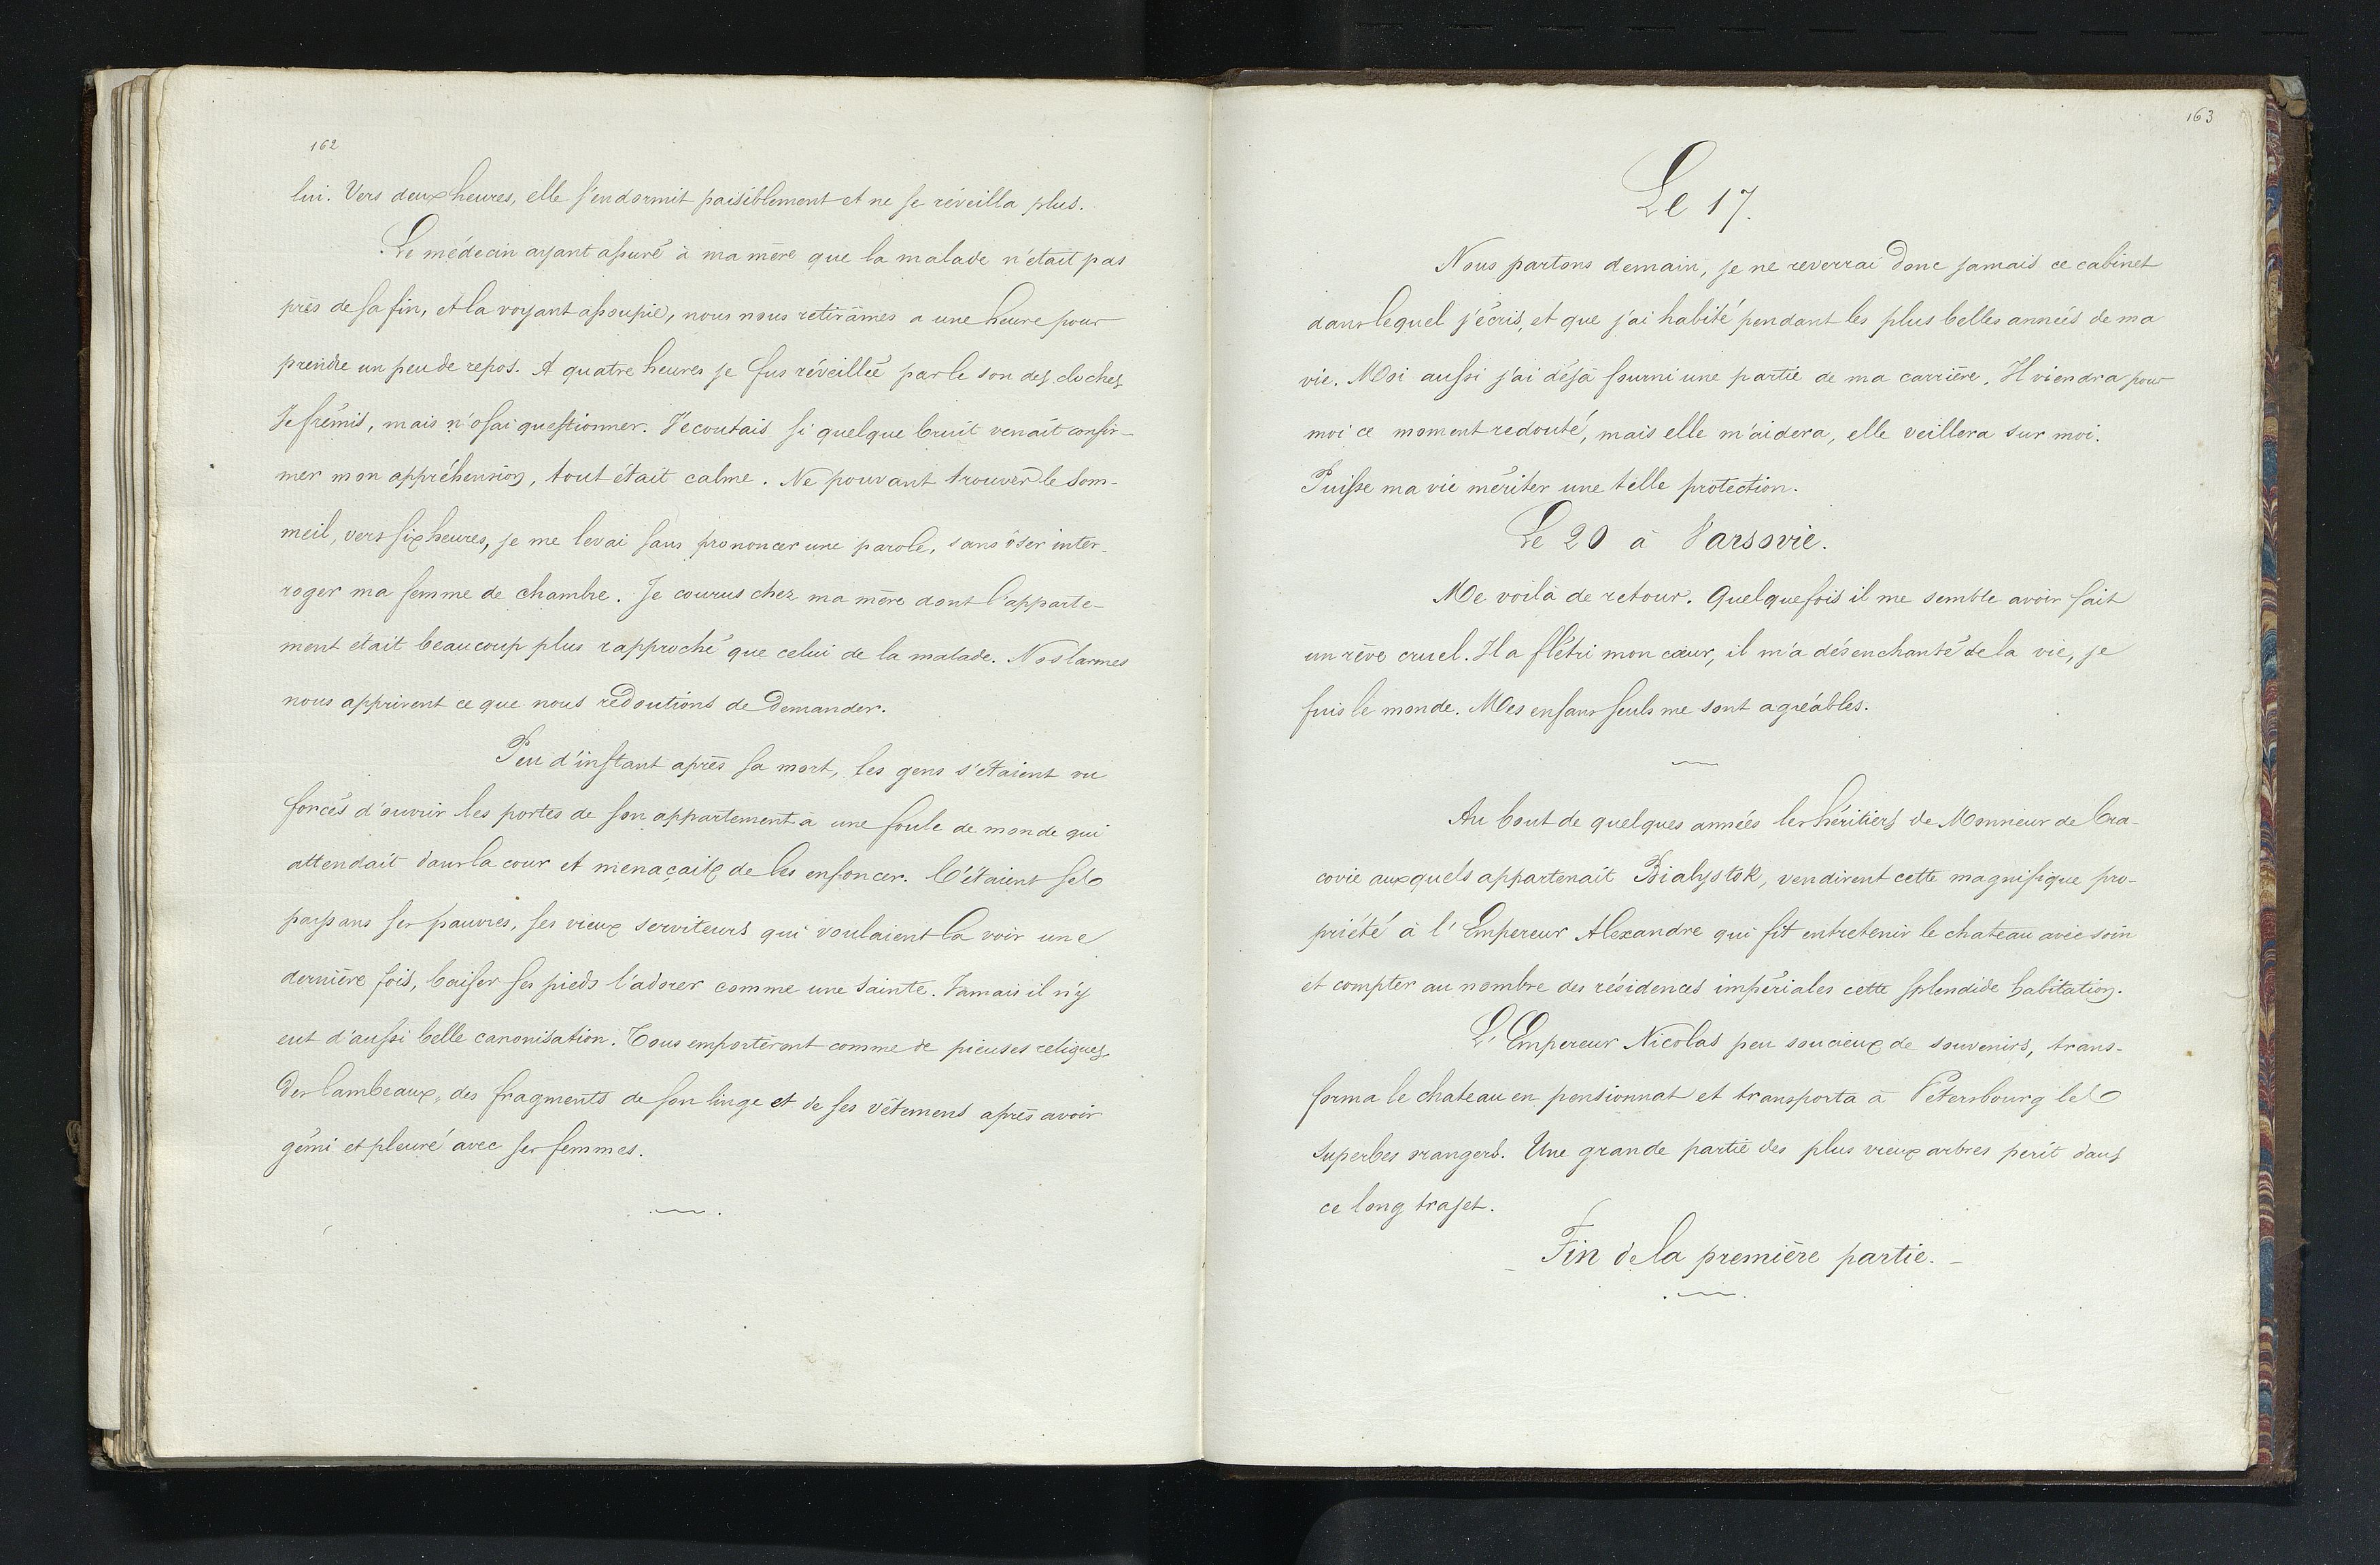 162
lui. Vers deux heures, elle s'endormit paisiblement et ne se réveilla plus.
Le médecin ayant assuré à ma mère que la malade n'était pas
près de sa fin, et la voyant assoupie, nous nous retirâmes a une heure pour
prendre un peu de repos. A quatre heures je fus réveillée par le son des cloches
Je frémis, mais n'osai questionner. J'écoutais si quelque bruit venait confir-
mer mon appréhension, tout était calme. Ne pouvant trouver le som-
meil, vers six heures, je me levai sans prononcer une parole, sans oser inter-
roger ma femme de chambre. Je courus chez ma mère dont l'apparte-
ment était beaucoup plus rapproché que celui de la malade. Nos larmes
nous apprirent ce que nous redoutions de demander.
Peu d'instant après sa mort, les gens s'étaient vu
forcés d'ouvrir les portes de son appartement à une foule de monde qui
attendait dans la cour et menaçait de les enfoncer. C'étaient ses
paysans ses pauvres, ses vieux serviteurs qui voulaient la voir une
dernière fois, baiser ses pieds l'adorer comme une sainte. Jamais il n'y
eut d'aussi belle canonisation. Tous emportèrent comme de pieuses reliques,
des lambeaux, des fragments de son linge et de ses vêtemens après avoir
gémi et pleuré avec ses femmes.
163
Le 17.
Nous partons demain, je ne reverrai donc jamais ce cabinet
dans lequel j'écris, et que j'ai habité pendant les plus belles années de ma
vie. Moi aussi j'ai déjà fourni une partie de ma carrière. Il viendra pour
moi ce moment redouté, mais elle m'aidera, elle veillera sur moi.
Puisse ma vie mériter une telle protection.
Le 20 à Varsovie.
Me voilà de retour. Quelquefois il me semble avoir fait
un rêve cruel. Il a flétri mon cœur, il m'a désenchanté de la vie, je
fuis le monde. Mes enfans seuls me sont agréables.
Au bout de quelques années les héritiers de Monsieur de Cra-
covie auxquels appartenait Bialystok, vendirent cette magnifique pro-
priété à l'Empereur Alexandre qui fit entretenir le chateau avec soin
et compter au nombre des résidences impériales cette splendide habitation.
L'Empereur Nicolas peu soucieux de souvenirs, trans-
forma le chateau en pensionnat et transporta à Pétersbourg les
superbes orangers. Une grande partie des plus vieux arbres périt dans
ce long trajet.
Fin de la première partie.